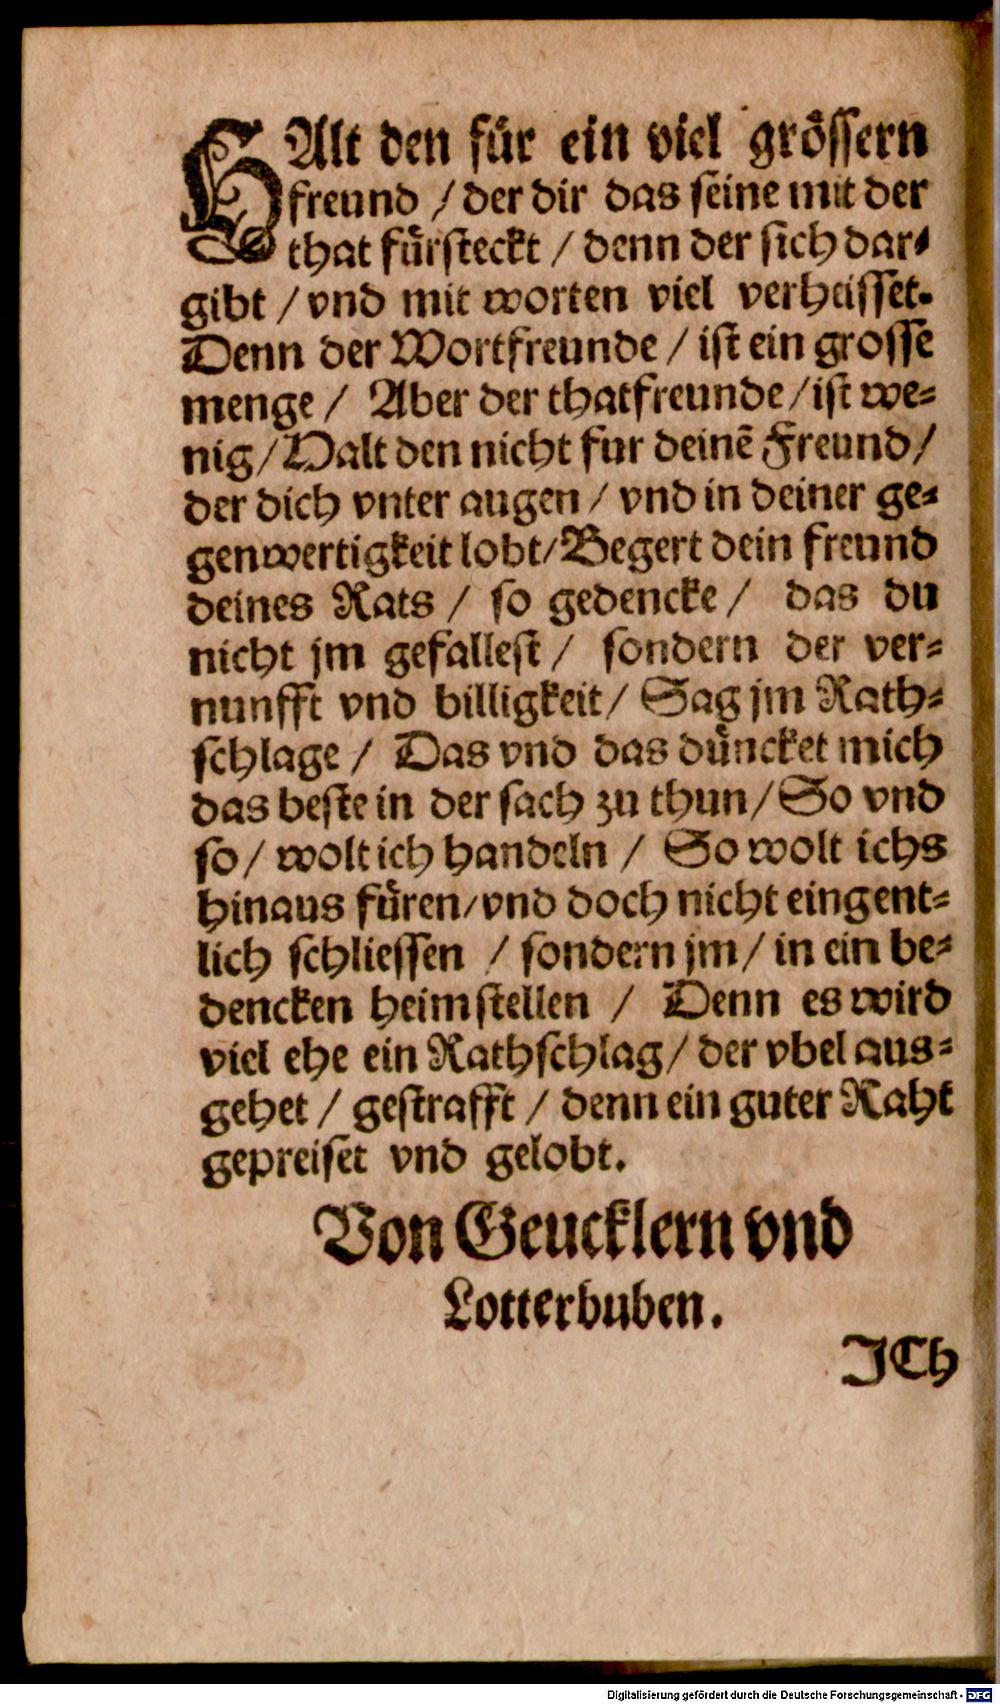 HAlt den für ein viel grössern
freund / der dir das seine mit der
that fürsteckt / denn der sich dar⸗
gibt / vnd mit worten viel verheisset.
Denn der Wortfreunde / ist ein grosse
menge / Aber der thatfreunde / ist we⸗
nig / Halt den nicht fur deinē Freund /
der dich vnter augen / vnd in deiner ge⸗
genwertigkeit lobt / Begert dein freund
deines Rats / so gedencke / das du
nicht jm gefallest / sondern der ver⸗
nunfft vnd billigkeit / Sag jm Rath⸗
schlage / Das vnd das düncket mich
das beste in der sach zu thun / So vnd
so / wolt ich handeln / So wolt ichs
hinaus füren / vnd doch nicht eingent⸗
lich schliessen / sondern jm / in ein be⸗
dencken heimstellen / Denn es wird
viel ehe ein Rathschlag / der vbel aus⸗
gehet / gestrafft / denn ein guter Raht
gepreiset vnd gelobt.
Von Geucklern vnd
Lotterbuben.
JCh
Digitalisierung gefördert durch die Deutsche Forschungsgemeinschaft - DFG